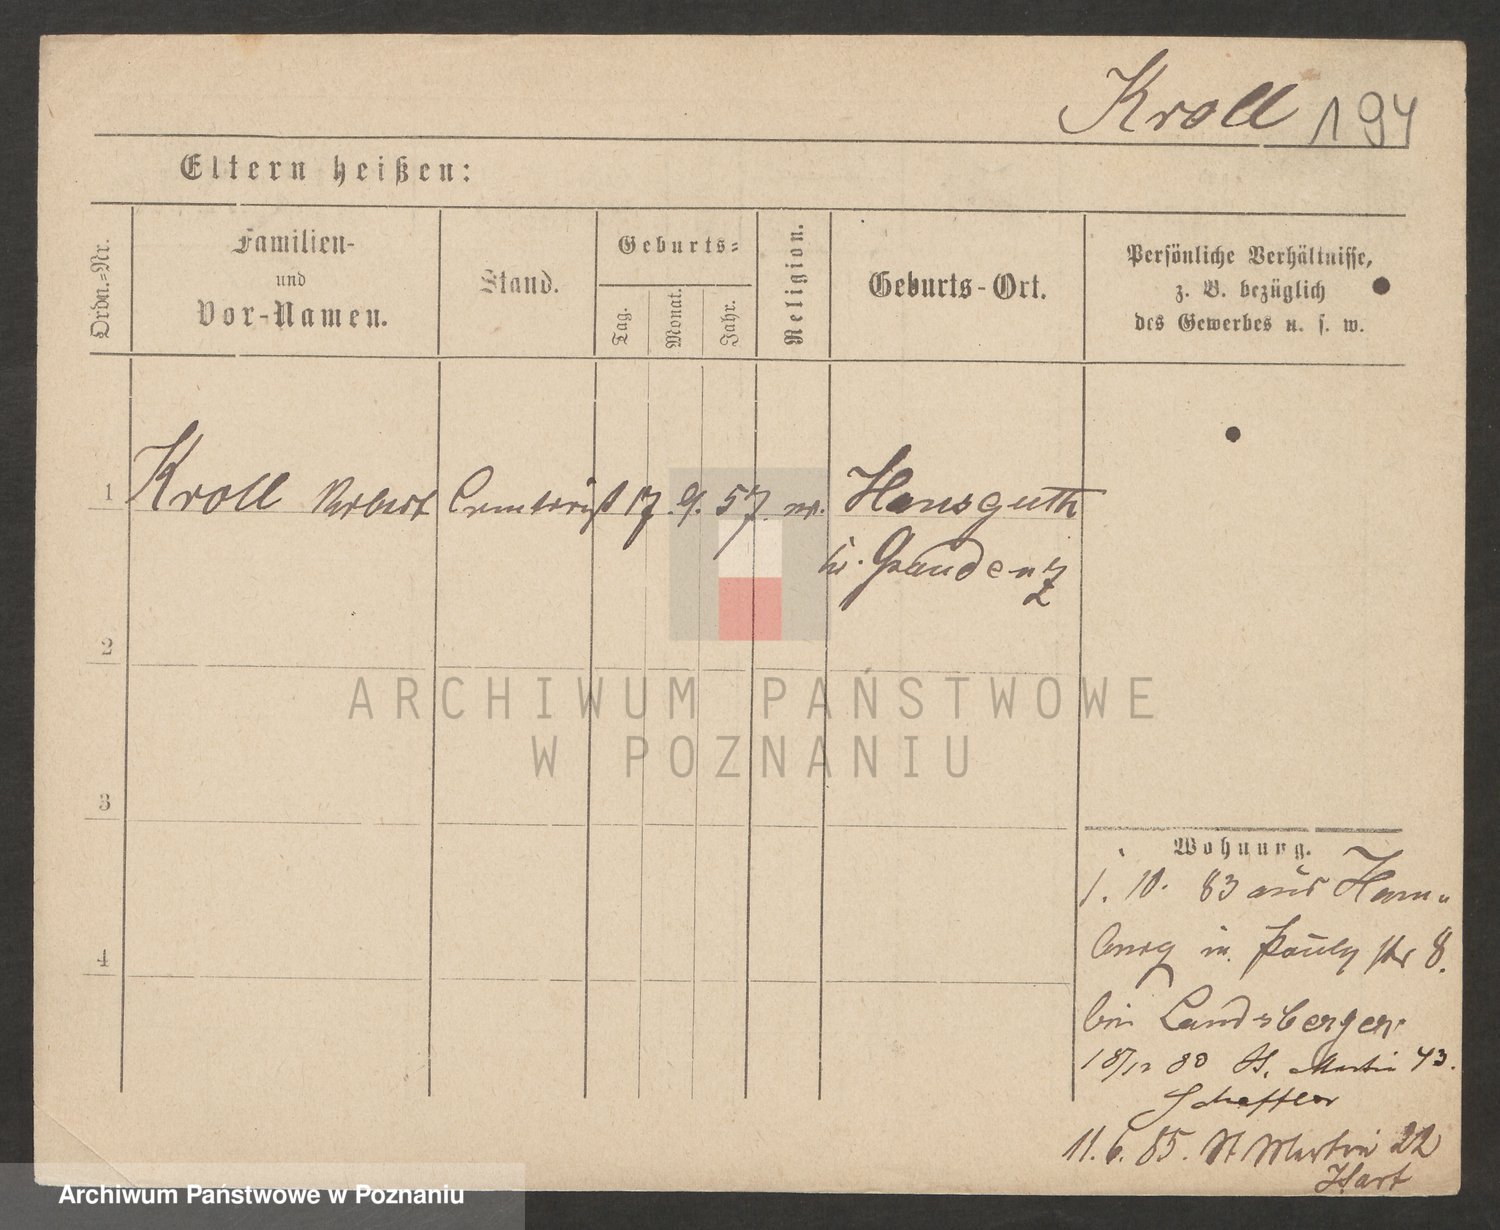 Kroll 194
Eltern heißen:
Ordn.-Nr.
Familien-
und
Vor-Namen.
Stand.
Geburts-
Tag.
Monat.
Jahr.
Religion.
Geburts-Ort.
Persönliche Verhältnisse,
z. B. bezüglich
des Gewerbes u. s. w.
1 Kroll 17. 9. 57. Hansguth
Graudenz
2
3
4
ARCHIWUM PAŃSTWOWE
W POZNANIU
Wohnung.
1. 10. 83 aus Ham-
burg in Pauly str 8.
bei Landsberger
St. Martin 43.
Scheffler
11. 6. 85. St Martin 22
Hart
Archiwum Państwowe w Poznaniu